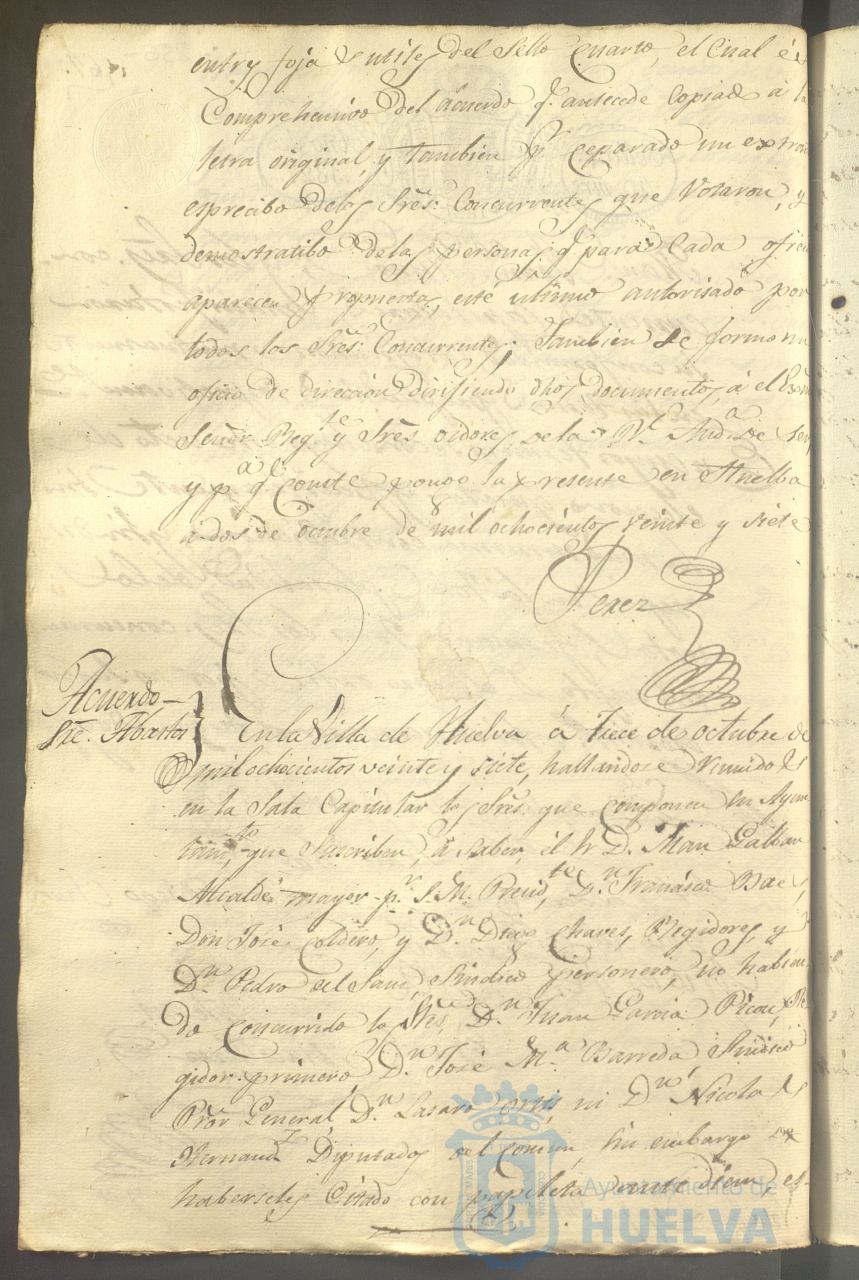 entry foja s utiles del Sello Cuarto, el Cual és
Comprehensivo del acuerdo q.e antecede copiado á la
letra original, y tambien p.r ceparado un extrac
esprecibo delos Sres. Concurrentes que Votaron, y
demostratibo delas personas q.e para Cada oficio
aparecen propuestas, este ultimo autorisado por
todos los Sres. Concurrentes; Tambien se formo un
oficio de dirección dirifiendo dhos documentos, á el Exmo
Señor Reg.te y Sres oidores de la R.l Aud.a de Sev
y p.a q.e Conste pongo la presente en Huelba
a dos de octubre de mil ochocientos veinte y siete
Perez
Acuerdo
sre. Abastos
En la Villa de Huelva á trece de octubre de
mil ochocientos veinte y siete, hallandose reunidos
en la Sala Capitular los Sres. que componen su Ayun
tam.to que Suscriben, á saber, el Sr D. Juan Galban
Alcalde mayor p.r S.M. Presid.te, D.n Francisco Baes,
Don José Coldero, y D.n Diego Chaves, Regidores, y
D.n Pedro del Sam, Sindico personero, no habien
do Concurrido los Sres. D.n Juan Garcia Picon, Re
gidor primero D.n José M.a Barreda Sindico
Pror General, D.n Lasaro ortis, ni D.n Nicolas
Hernand.z Diputados del comun, sin embargo de
haberseles Citado con papeleta ante diem, es-
Ayuntamiento de
HUELVA